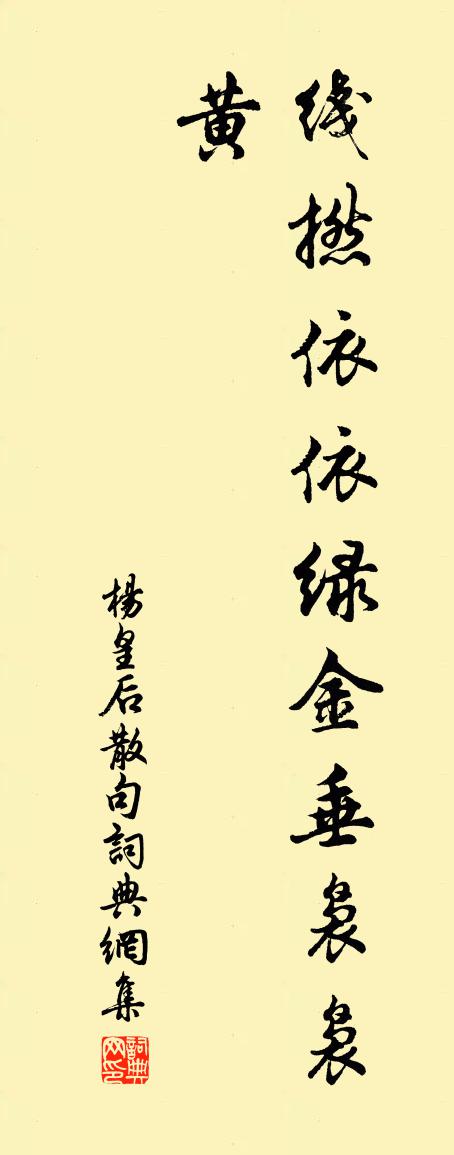 綫撚依依緑金垂裊裊
黄
楊皇后散句詞典網集
詞典
网印